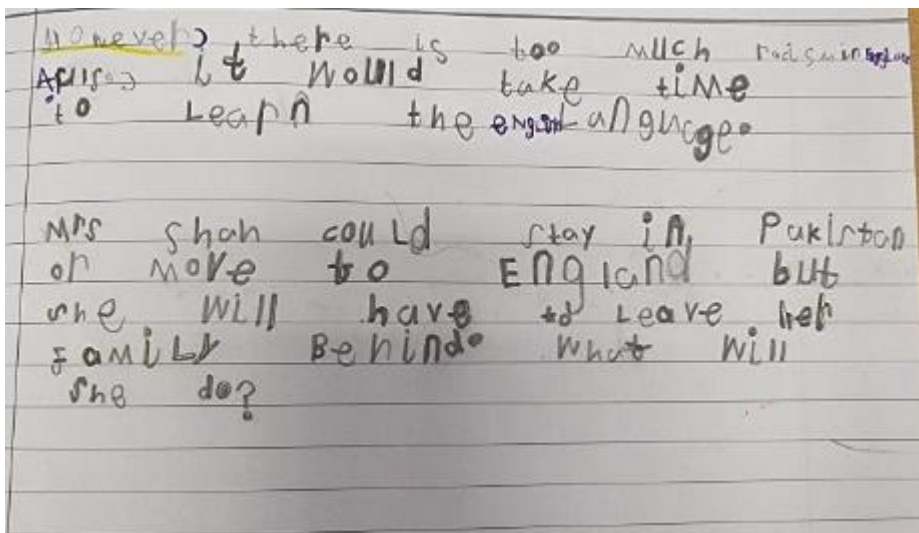 However, there is too much racism in England
it would take time
to Learn the English Language.
Mrs Shah could stay in Pakistan
or move to England but
she will have to Leave her
famiLy Behind. What will
she do?